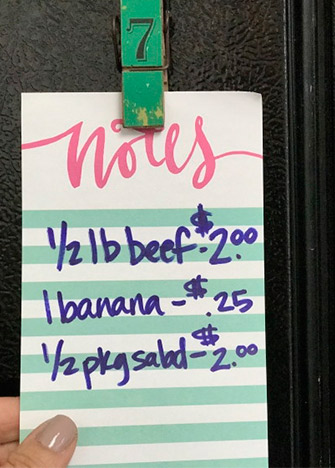 7
notes
1/2 lb beef - $2.00
1 banana - $.25
1/2 pkg salad - $2.00